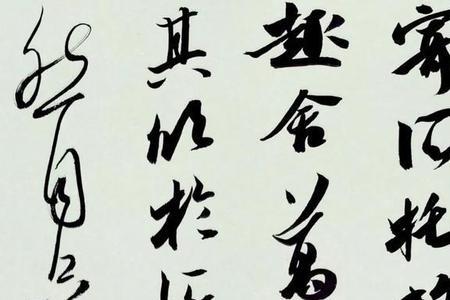 寄所托
趣舍萬
其欣於所
然自足